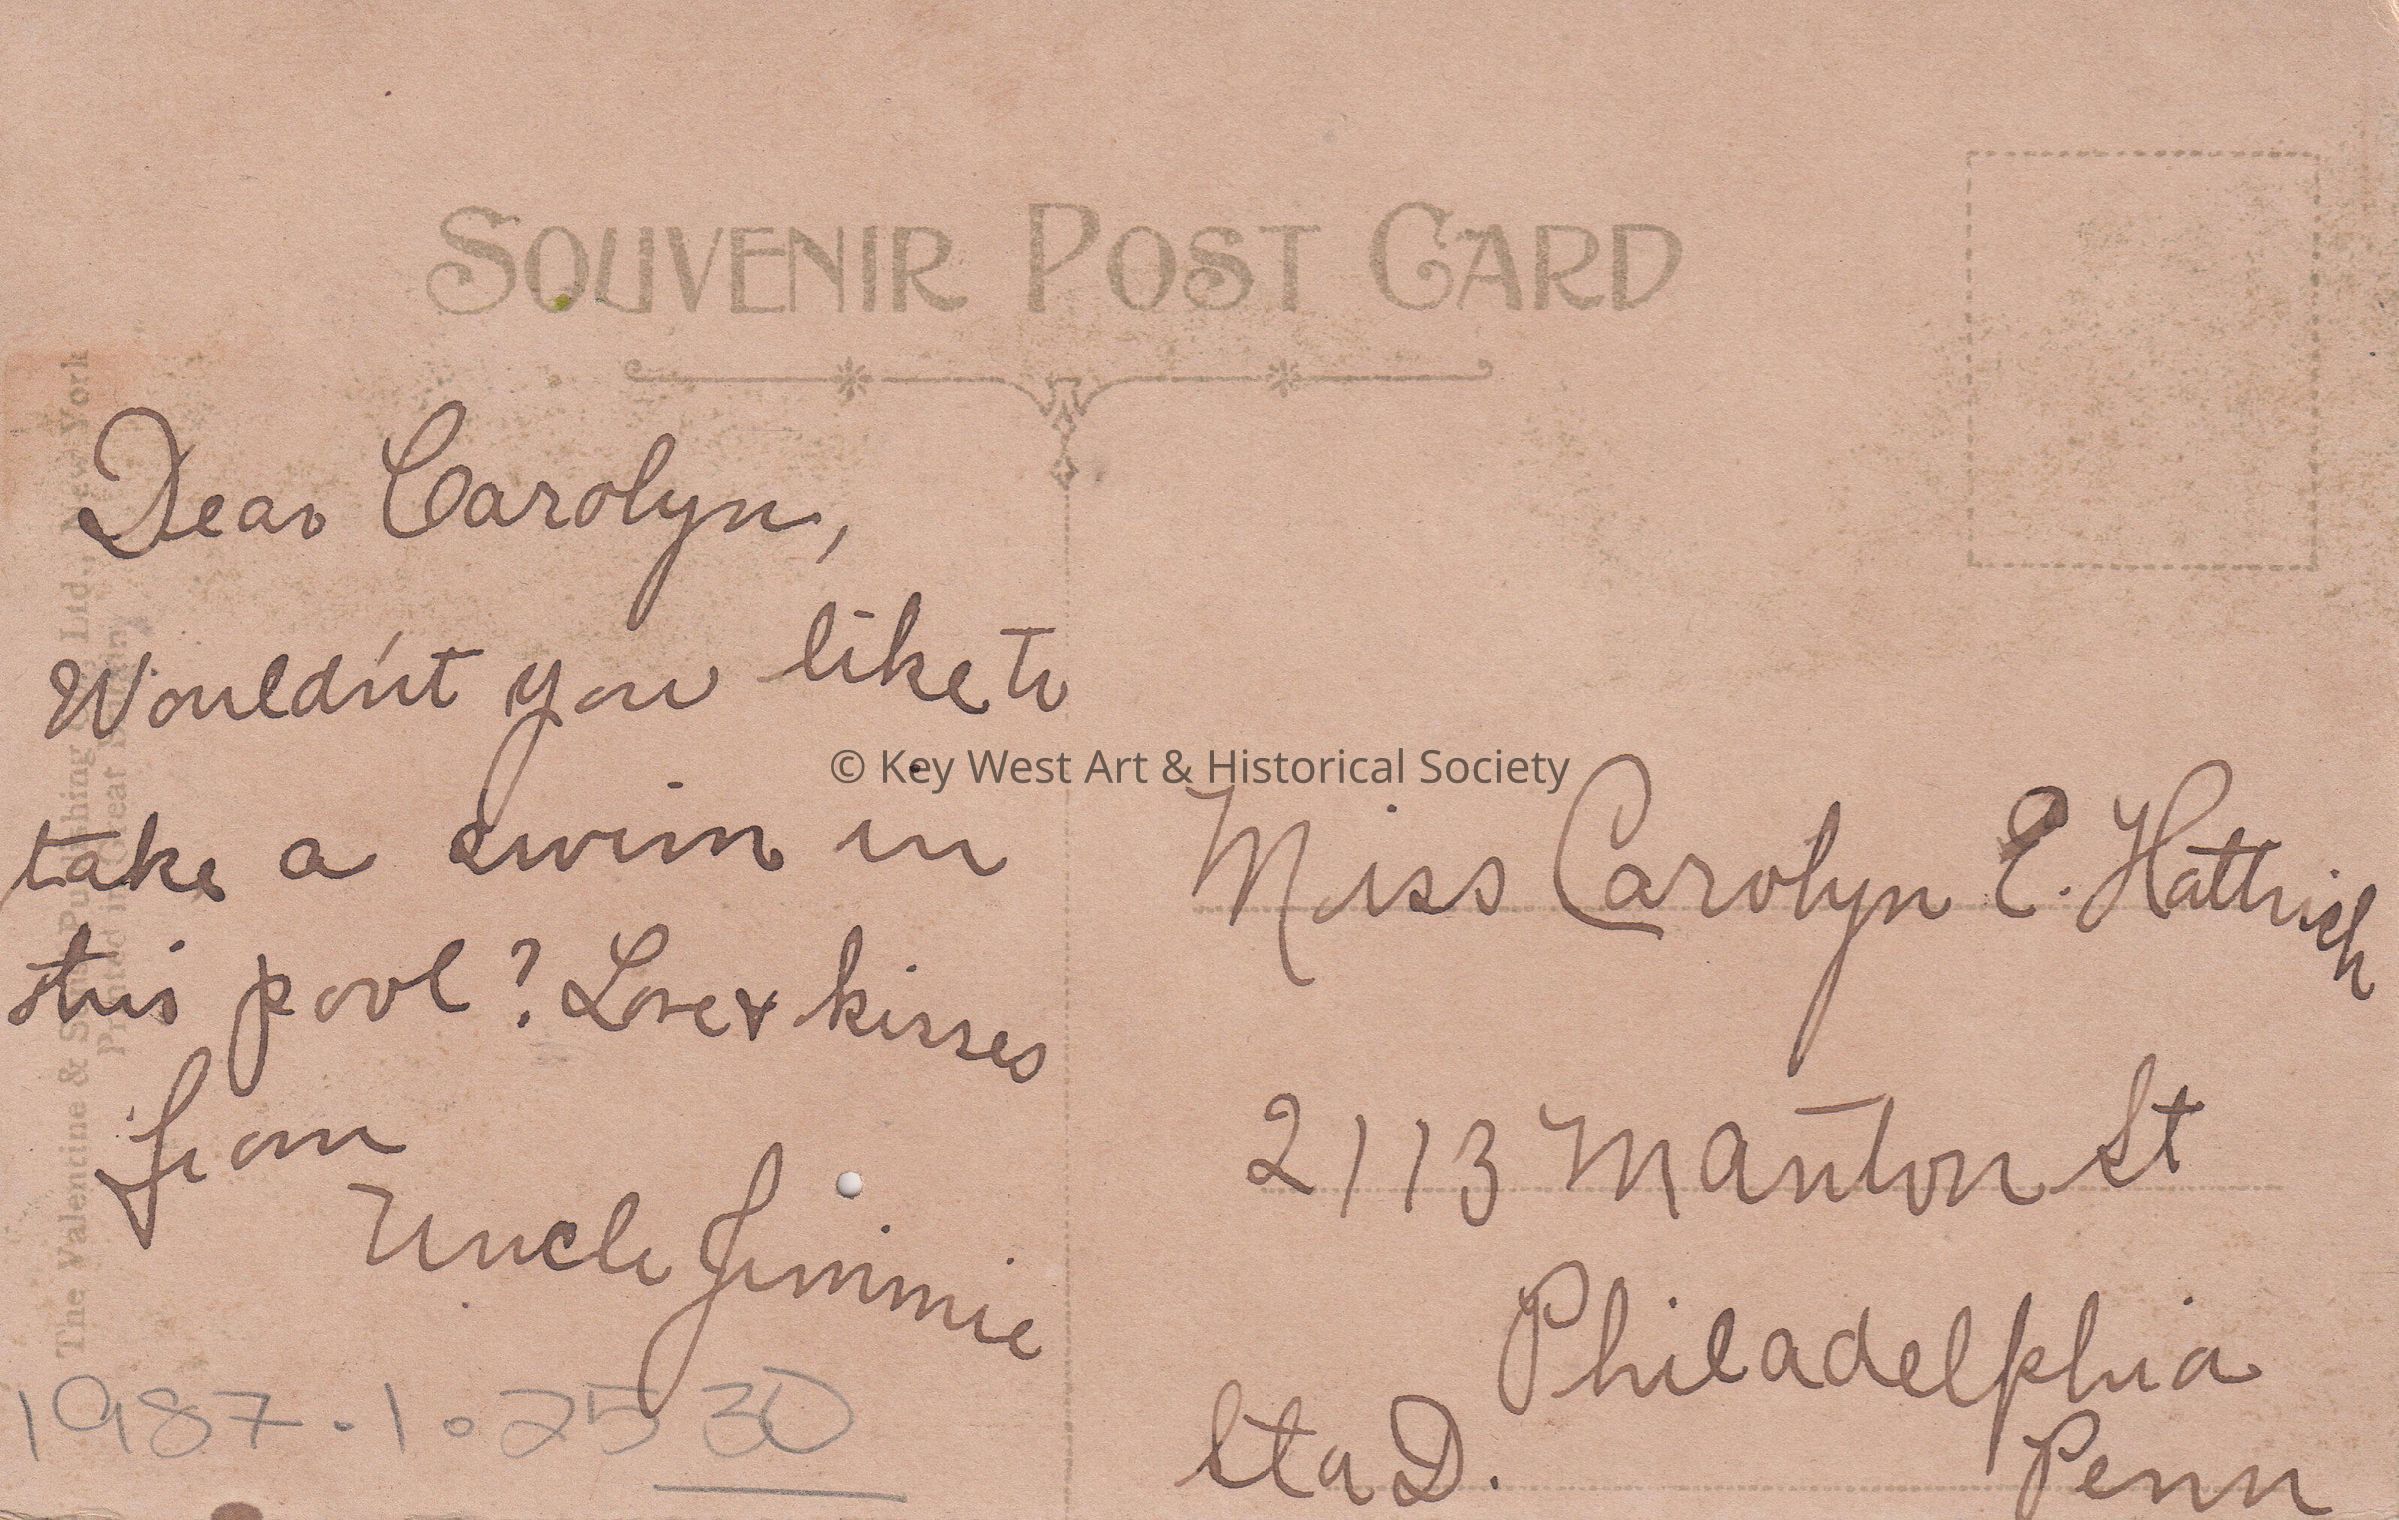 SOUVENIR POST CARD
The Valentine & Sons Publishing Co. Ltd., New York
Printed in Great Britain
Dear Carolyn,
Would'nt you like to
take a swim in
this pool? Love & kisses
from
Uncle Jimmie
1987.1.2530
© Key West Art & Historical Society
Miss Carolyn E. Hattrich
2113 Manton St
Philadelphia
Sta D. Penn